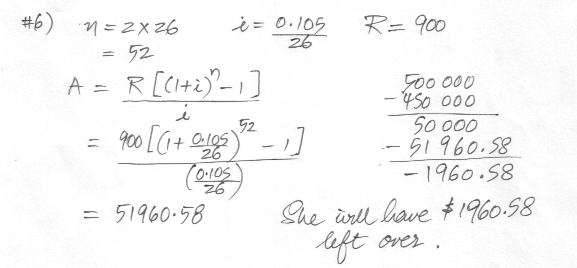 #6) n = 2 x 26 i = 0.105/26 R = 900
= 52
A = R[(1+i)^n - 1] / i
= 900[(1 + 0.105/26)^52 - 1] / (0.105/26)
= 51960.58
500 000
- 450 000
50 000
- 51 960.58
- 1960.58
She will have $1960.58
left over.